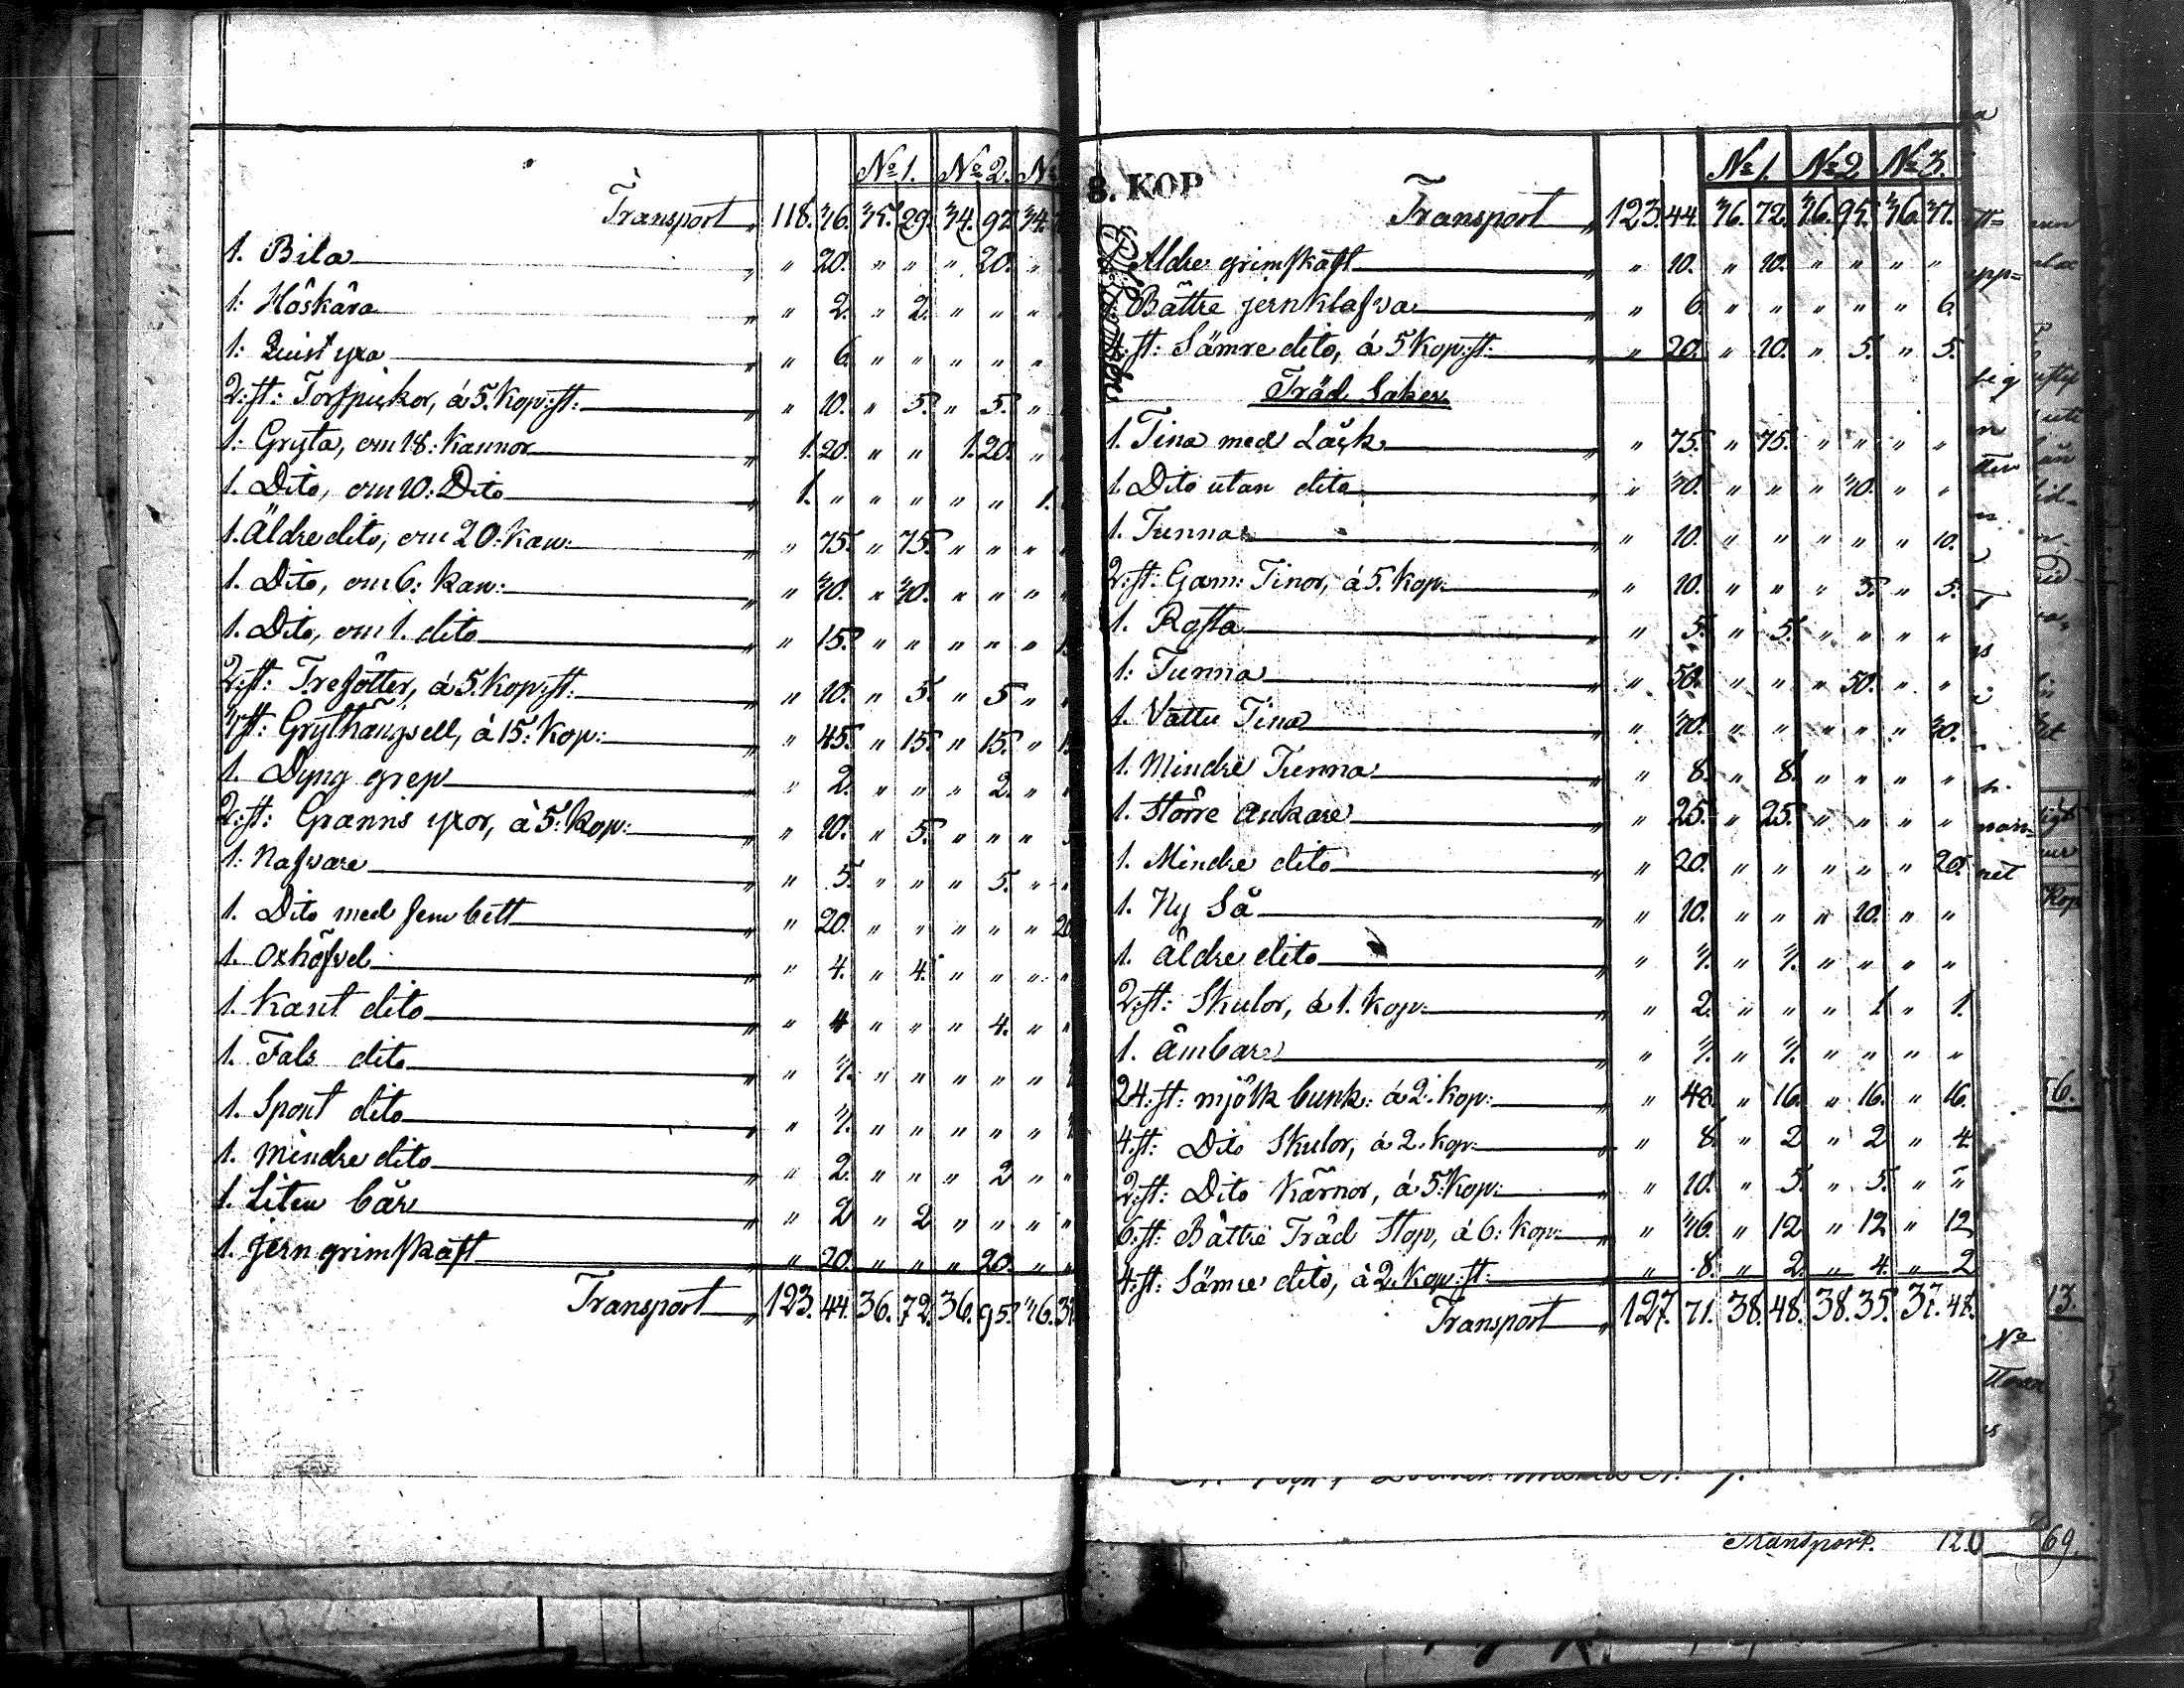 No 1. No 2. No
Transport 118. 36. 35. 29. 34. 92. 34.
1. Bila " 20. " " " 20. "
1: Höskåra " 2. " 2. " " "
1: Quist yxa " 6. " " " " "
2:st: Torfpickor, á 5. Kop:st: " 10. " 5. " 5. "
1: Gryta, om 18: Kannor 1. 20. " " 1. 20. "
1. Dito, om 10: Dito 1. " " " " " 1.
1. Äldre dito, om 20: Kan: " 75. " 75. " " "
1. Dito, om 6: Kan: " 30. " 30. " " "
1. Dito, om 1. dito " 15. " " " " "
2:st: Trefötter, á 5. Kop:st: " 10. " 5. " 5. "
3st: Grythängsell, á 15: Kop: " 45. " 15. " 15. "
1. Dyng grep " 2. " " " 2. "
2:st: Granris yxor, á 5: Kop: " 10. " 5. " " "
1: Nafvare " 5. " " " 5. "
1. Dito med fem bett " 20. " " " " " 20
1. Oxhöfvel " 4. " 4. " " "
1. Kant dito " 4 " " " 4. "
1. Fals dito " 3. " " " " "
1. Spont dito " 3. " " " " "
1. Mindre dito " 2. " " " 2 "
1. Liten bår " 2 " 2 " " "
1. Jern grimskaft " 20. " " " 20. "
Transport 123. 44. 36. 72. 36. 95. 36. 37.
8. KOP
No 1. No 2 No 3.
Transport 123. 44. 36. 72. 36. 95. 36. 37.
Äldre grimskaft " 10. " 10. " " " "
Bättre jernklafva " 6. " " " " " 6.
4:st: Sämre dito, á 5 Kop:st: " 20. " 10. " 5. " 5.
Träd Saker
1. Tina med Låck " 75. " 75. " " " "
1. Dito utan dito " 30. " " " 30. " "
1. Tunna " 10. " " " " " 10.
2:st: Gam: Tinor, á 5. Kop: " 10. " " " 5. " 5.
1. Rosta " 5. " 5. " " " "
1: Tunna " 50. " " " 50. " "
1. Vattu Tina " 30. " " " " " 30.
1. Mindre Tunna " 8. " 8. " " " "
1. Större Ankare " 25. " 25. " " " "
1. Mindre dito " 20. " " " " " 20.
1. Ny Så " 10. " " " 10. " "
1. äldre dito " 3. " 3. " " " "
2:st: Skulor, á 1. Kop: " 2. " " " 1 " 1.
1. Ämbare " 3. " 3. " " " "
24:st: mjölk bunk: á 2: Kop: " 48. " 16. " 16. " 16.
4:st: Dito Skulor, á 2. Kop: " 8. " 2 " 2 " 4.
2:st: Dito Kärnor, á 5: Kop: " 10. " 5. " 5. " "
6:st: Bättre Träd Stop, á 6: Kop: " 36. " 12 " 12 " 12
4:st: Sämre dito, á 2 Kop:st: " 8. " 2. " 4. " 2
Transport 127. 71. 38. 48. 38. 35. 37. 48.
Transport. 120 69.